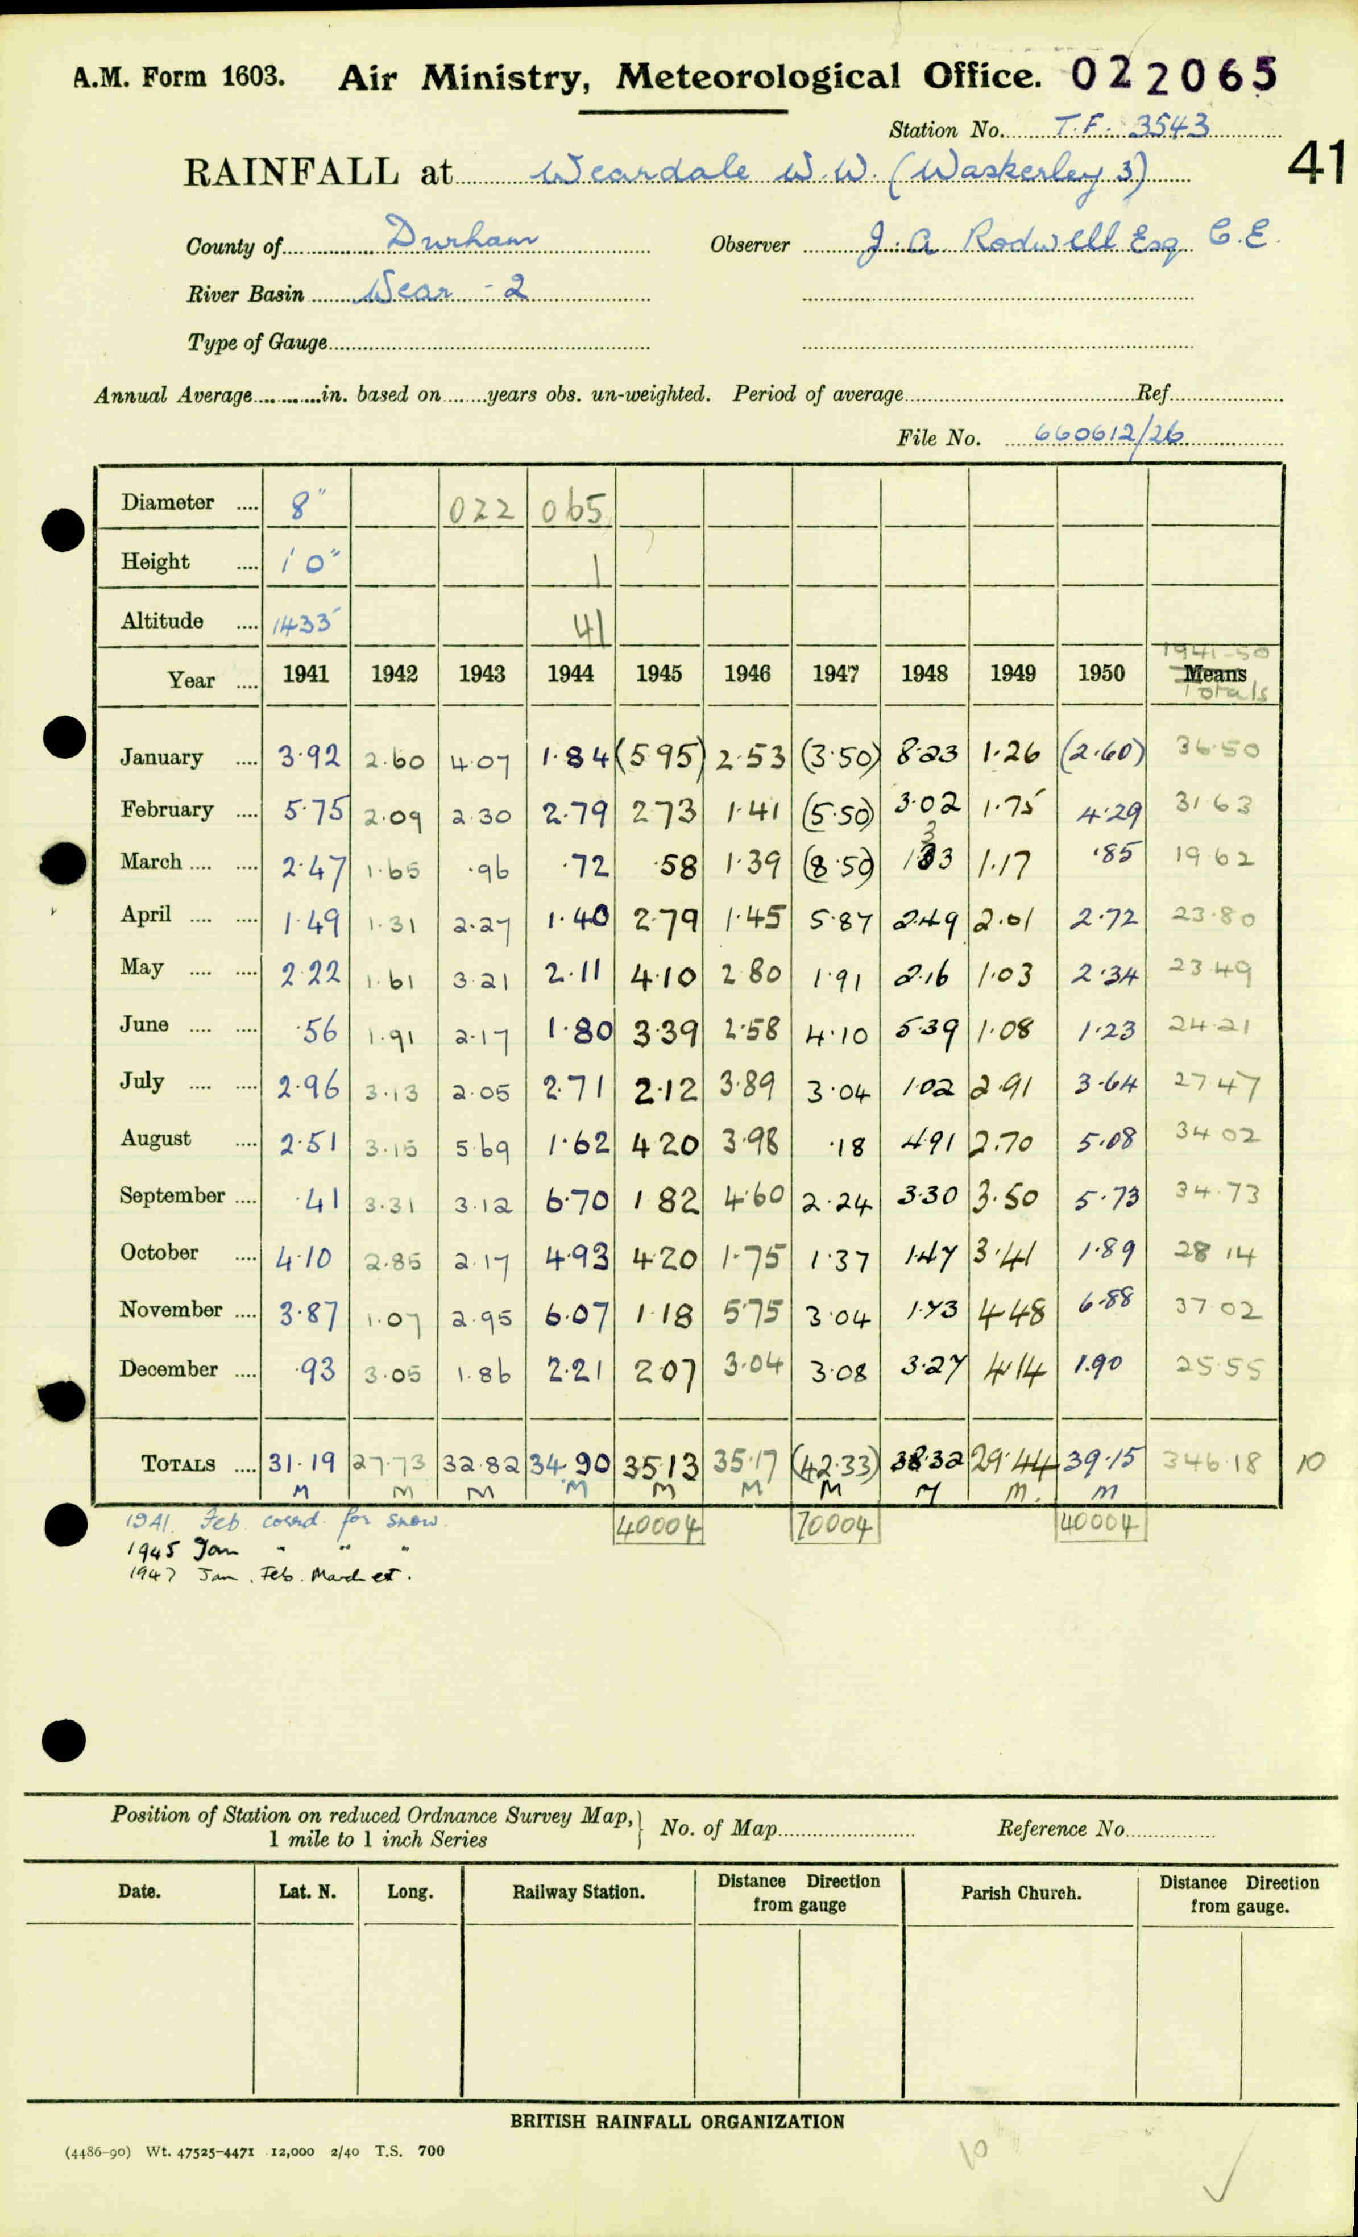 A.M. Form 1603. Air Ministry, Meteorological Office. 022065
Station No. T.F. 3543
RAINFALL at Weardale W.W. (Waskerley 3) 41
County of Durham Observer J. A Rodwell Esq C.E.
River Basin Wear - 2
Type of Gauge
Annual Average in. based on years obs. un-weighted. Period of average Ref
File No. 660612/26
Diameter 8" 022 065
Height 1' 0" 1
Altitude 1433' 41
Year 1941 1942 1943 1944 1945 1946 1947 1948 1949 1950 1941-50 Means Totals
January 3.92 2.60 4.07 1.84 (5.95) 2.53 (3.50) 8.23 1.26 (2.60) 36.50
February 5.75 2.09 2.30 2.79 2.73 1.41 (5.50) 3.02 1.75 4.29 31.63
March 2.47 1.65 .96 .72 .58 1.39 (8.50) 1.33 1.17 .85 19.62
April 1.49 1.31 2.27 1.40 2.79 1.45 5.87 2.49 2.01 2.72 23.80
May 2.22 1.61 3.21 2.11 4.10 2.80 1.91 2.16 1.03 2.34 23.49
June .56 1.91 2.17 1.80 3.39 2.58 4.10 5.39 1.08 1.23 24.21
July 2.96 3.13 2.05 2.71 2.12 3.89 3.04 1.02 2.91 3.64 27.47
August 2.51 3.15 5.69 1.62 4.20 3.98 .18 4.91 2.70 5.08 34.02
September .41 3.31 3.12 6.70 1.82 4.60 2.24 3.30 3.50 5.73 34.73
October 4.10 2.85 2.17 4.93 4.20 1.75 1.37 1.47 3.41 1.89 28.14
November 3.87 1.07 2.95 6.07 1.18 5.75 3.04 1.73 4.48 6.88 37.02
December .93 3.05 1.86 2.21 2.07 3.04 3.08 3.27 4.14 1.90 25.55
TOTALS 31.19 27.73 32.82 34.90 35.13 35.17 (42.33) 38.32 29.44 39.15 346.18 10
M M M M M M M M M M
1941. Feb coeerd for snow. 40004 70004 40004
1945 Jan " " "
1947 Jan. Feb. March est.
Position of Station on reduced Ordnance Survey Map, 1 mile to 1 inch Series No. of Map Reference No.
Date. Lat. N. Long. Railway Station. Distance Direction from gauge Parish Church. Distance Direction from gauge.
BRITISH RAINFALL ORGANIZATION
(4486-90) Wt. 47525-4471 12,000 2/40 T.S. 700
10